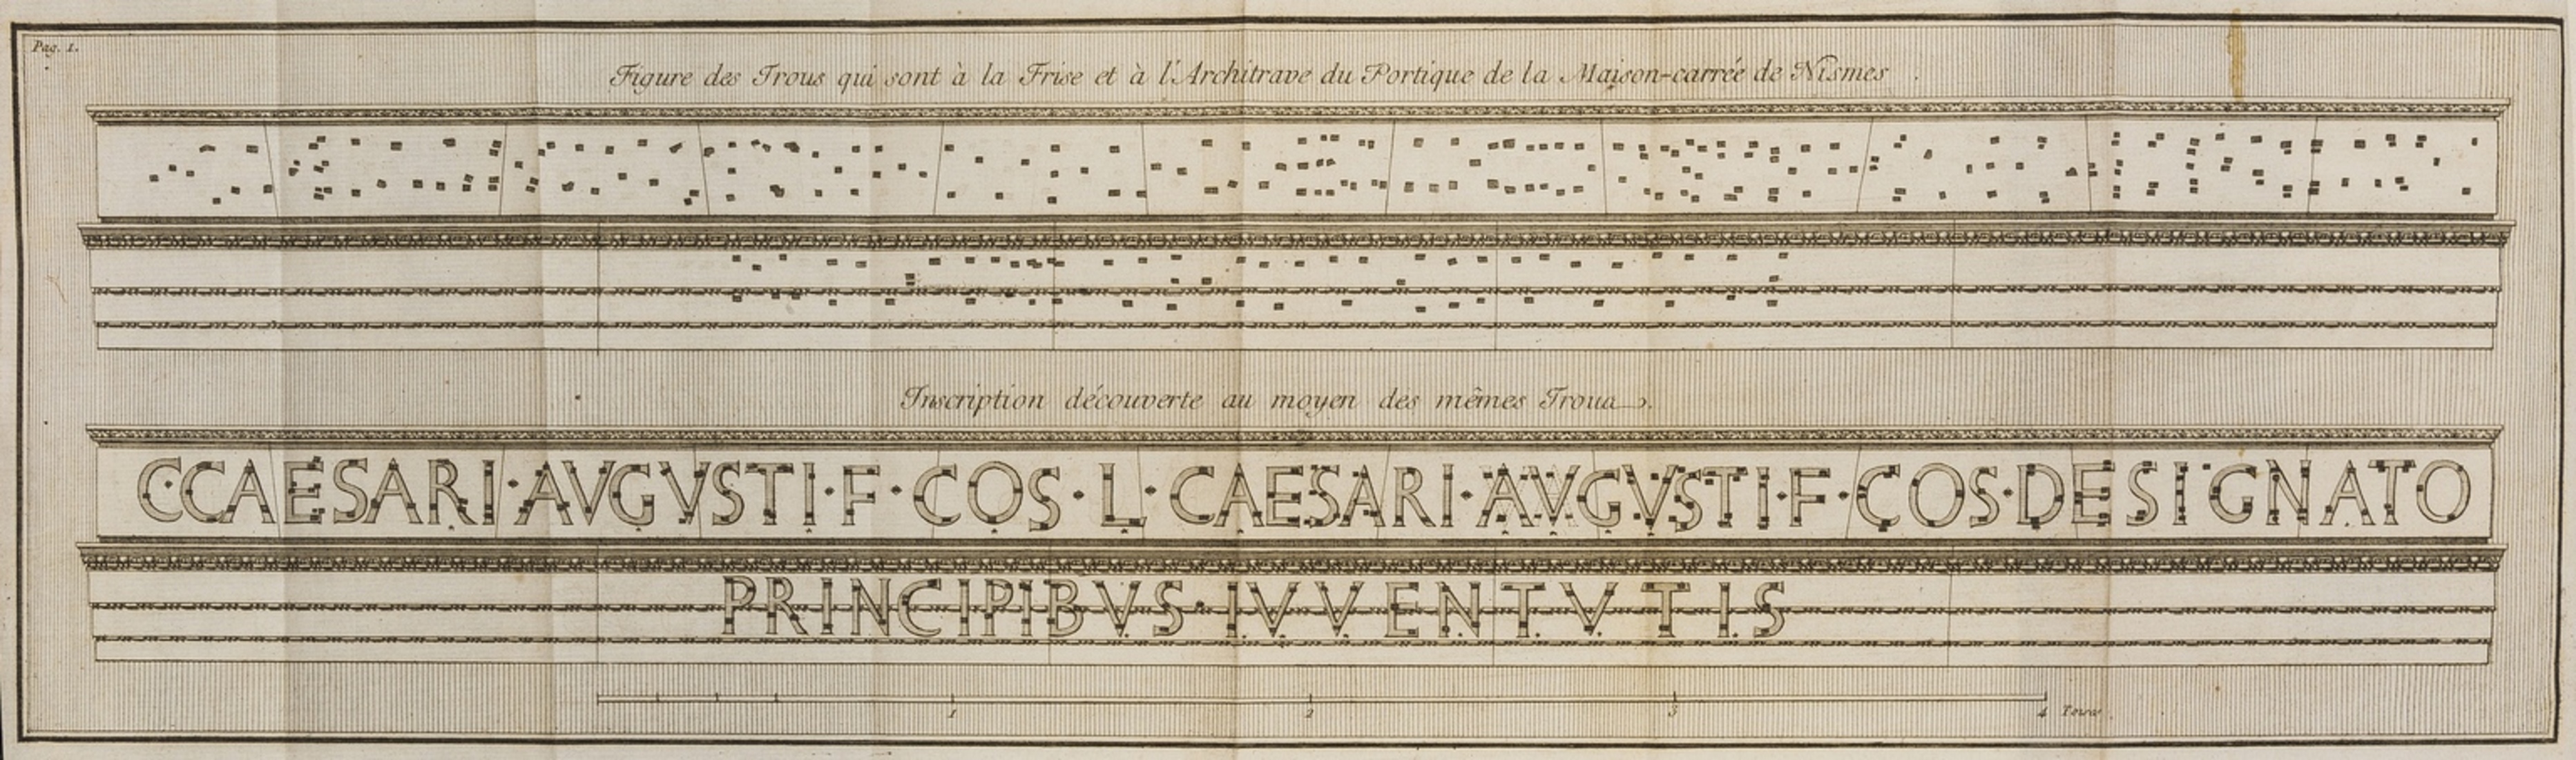 Pag. 1.
Figure des Trous qui sont à la Frise et à l'Architrave du Portique de la Maison-carrée de Nismes.
Inscription découverte au moyen des mêmes Trous.
C·CAESARI·AVGVSTI·F·COS·L·CAESARI·AVGVSTI·F·COS·DESIGNATO
PRINCIPIBVS·IVVENTVTIS
1 2 3 4 Toises